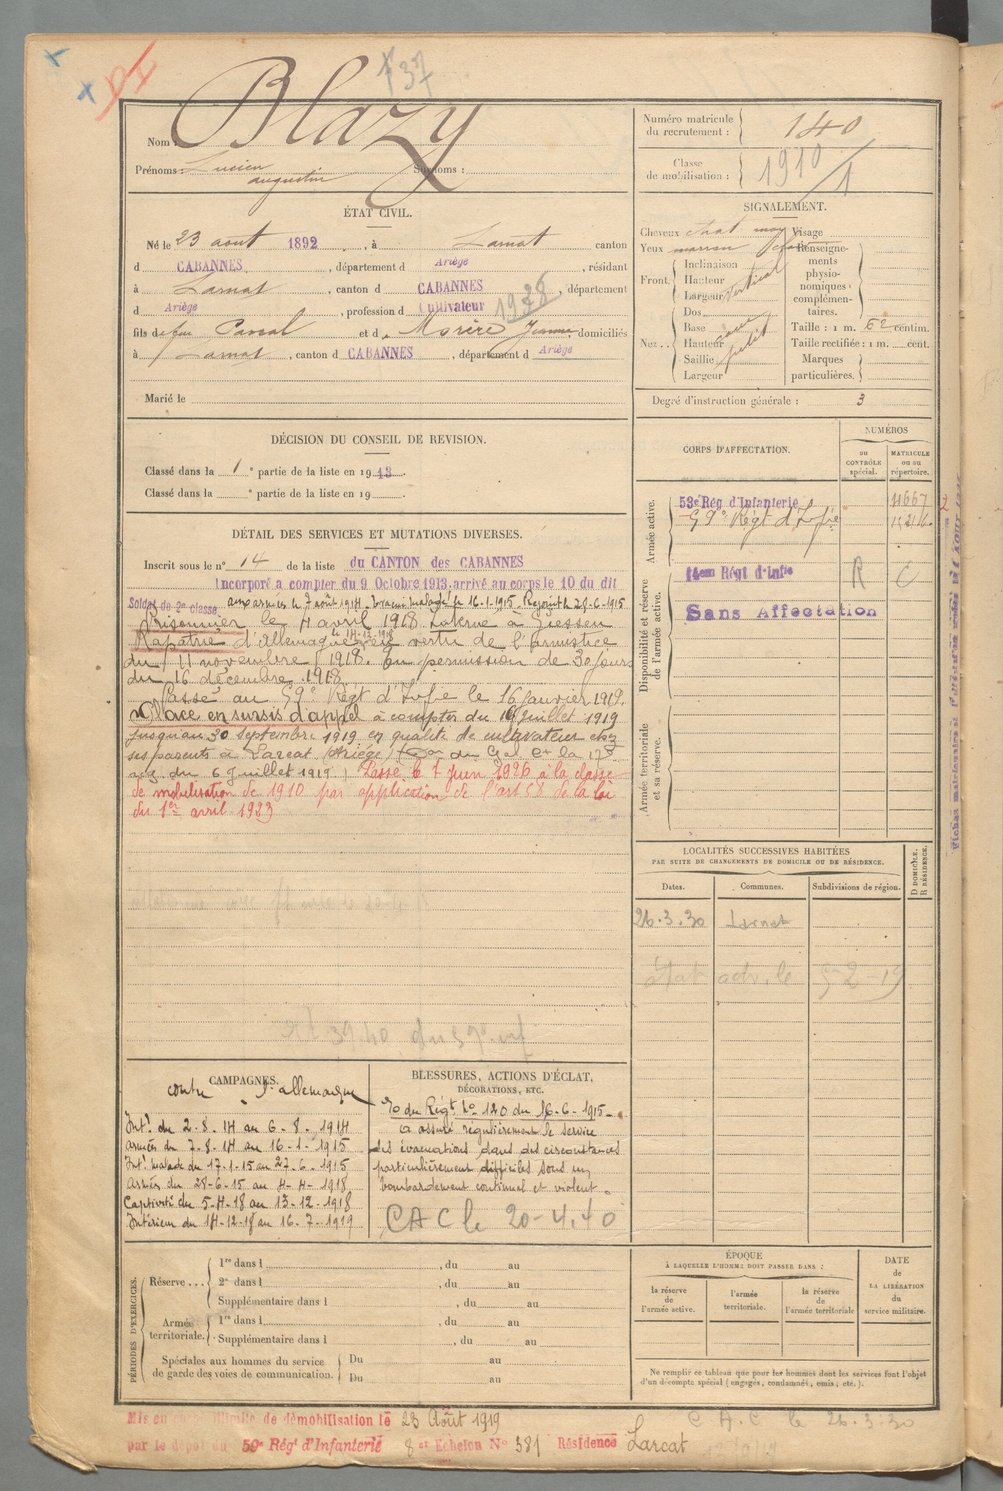 137
Nom : Blazy
Prénoms : Lucien Surnoms :
augustin
Numéro matricule du recrutement : 140
Classe de mobilisation : 1910 / 1
ÉTAT CIVIL.
Né le 23 aout 1892, à Larnat canton
d CABANNES, département d Ariège, résidant
à Larnat, canton d CABANNES, département
d Ariège, profession d Cultivateur 1928
fils de feu Pascal et d Morère Jeanne domiciliés
à Larnat, canton d CABANNES, département d Ariège
Marié le
SIGNALEMENT.
Cheveux chat moy Visage
Yeux marron Renseigne-
ments
physio-
nomiques
complémen-
taires.
Front. Inclinaison
Hauteur
Largeur vertical
Nez.. Dos
Base
Hauteur
Saillie
Largeur
Taille : 1 m. 62 centim.
Taille rectifiée : 1 m. cent.
Marques
particulières.
Degré d'instruction générale : 3
DÉCISION DU CONSEIL DE REVISION.
Classé dans la 1e partie de la liste en 1913.
Classé dans la e partie de la liste en 19
DÉTAIL DES SERVICES ET MUTATIONS DIVERSES.
Inscrit sous le n° 14 de la liste du CANTON des CABANNES
Incorporé a compter du 9 Octobre 1913. arrivé au corps le 10 du dit
Soldat de 2e classe. aux armées le 7 août 1914. Evacué malade le 16-1-1915. Rejoint le 28-6-1915
Prisonnier le 4 avril 1918 Interné à Giessen
Rapatrié d'Allemagne le 14-12-1918 en vertu de l'armistice
du 11 novembre 1918. En permission de 30 jours
du 16 décembre 1918
Passé au 59e Régt d'Infie le 16 Janvier 1919.
Placé en sursis d'appel à compter du 16 Juillet 1919
jusqu'au 30 Septembre 1919 en qualité de cultivateur chez
ses parents à Larcat (Ariège)
du 6 Juillet 1919) Passé le 1 Juin 1926 à la classe
de mobilisation de 1910 par application de l'art 58 de la loi
du 1er avril 1923
CORPS D'AFFECTATION.
NUMÉROS
au
CONTRÔLE
spécial.
MATRICULE
ou au
répertoire.
Armée active.
53e Rég d'Infanterie 11667
59e Régt d'Infie
Disponibilité et réserve de l'armée active.
14em Régt d'Infie R C
Sans Affectation
Armée territoriale et sa réserve.
LOCALITÉS SUCCESSIVES HABITÉES
PAR SUITE DE CHANGEMENTS DE DOMICILE OU DE RÉSIDENCE.
Dates. Communes. Subdivisions de région.
D DOMICILE.
R RÉSIDENCE.
26.3.30 Larnat
CAMPAGNES.
contre l'allemagne
Intr du 2-8-14 au 6-8-1914
armées du 7-8-14 au 16-1-1915
Intr malade du 17-1-15 au 27-6-1915
Armées du 28-6-15 au 4-4-1918
Captivité du 5-4-18 au 13-12-1918
Intérieur du 14-12-18 au 16-7-1919
BLESSURES, ACTIONS D'ÉCLAT,
DÉCORATIONS, ETC.
O du Régt No 120 du 16-6-1915
a assuré régulièrement le service
des évacuations dans des circonstances
particulièrement difficiles sous un
bombardement continuel et violent.
CAC le 20-4.40
PÉRIODES D'EXERCICES.
Réserve... 1re dans l , du au
2e dans l , du au
Supplémentaire dans l , du au
Armée territoriale. 1re dans l , du au
Supplémentaire dans l , du au
Spéciales aux hommes du service
de garde des voies de communication.
Du au
Du au
ÉPOQUE
À LAQUELLE L'HOMME DOIT PASSER DANS :
la réserve
de
l'armée active.
l'armée
territoriale.
la réserve
de
l'armée territoriale
DATE
de
LA LIBÉRATION
du
service militaire.
Ne remplir ce tableau que pour les hommes dont les services font l'objet
d'un décompte spécial (engagés, condamnés, omis, etc.).
Mis en congé illimité de démobilisation le 23 Août 1919
par le dépôt du 59e Rég' d'Infanterie 8e Echelon No 381 Résidence Larcat
C.A.C le 26.3.30